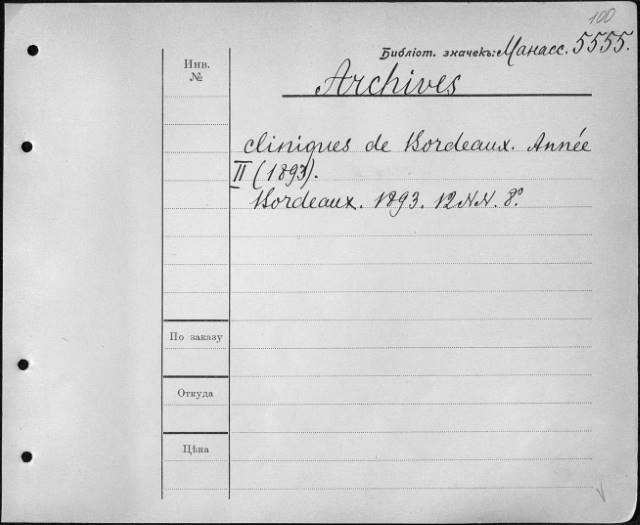 100
Библіот. значекъ: Манасс. 5555.
Инв.
№
Archives
cliniques de Bordeaux. Année
II (1893).
Bordeaux. 1893. 12 NN. 8º
По заказу
Откуда
Цѣна